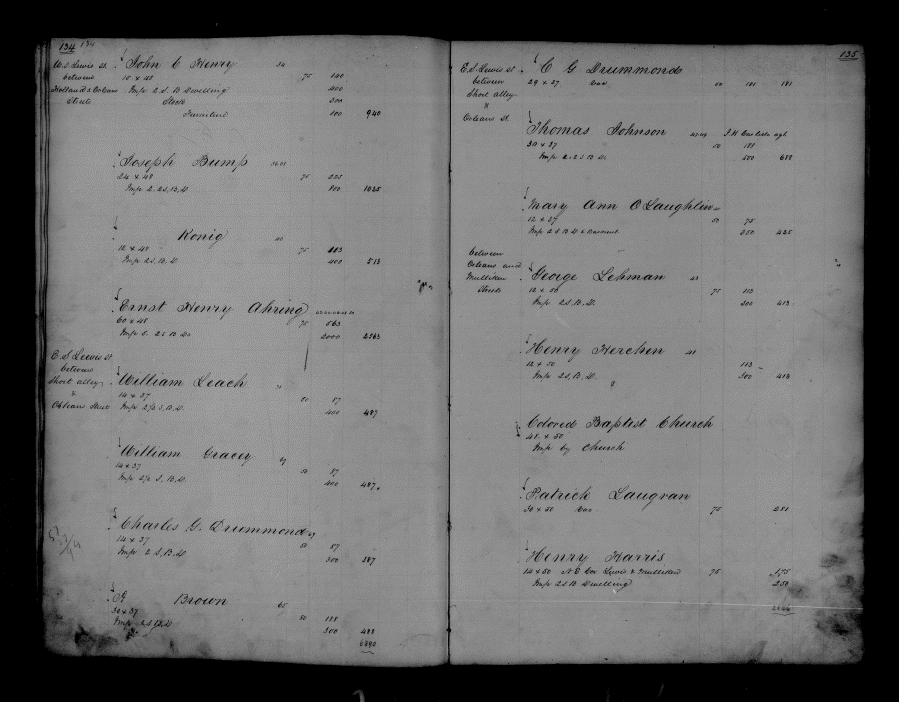 134 134
W. S. Lewis st. John C Henry 34
between 15 x 48 75 140
Holland & Orleans Imp 2 S. B Dwelling 400
Streets Stock 300
Furniture 100 940
Joseph Bump
24 x 48 75 225
Imp 2. 2 S. B. D 800 1025
Konig 40
12 x 48 75 113
Imp 2 S. B. D 400 513
Ernst Henry Ahring
60 x 48 75 563
Imp 5. 2 S B Ds 2000 2563
E. S Lewis st
between
Short alley William Leach
& 14 x 37 50 87
Orleans Street Imp 2½ S. B. D. 400 487
William Gracey 69
14 x 37 50 87
Imp 2½ S. B. D. 400 487
Charles G. Drummond 69
14 x 37 50 87
Imp 2 S. B. D 300 387
Brown 65
30 x 37 50 188
Imp 2 S B. D 300 488
6890
135
E. S Lewis st C G Drummond
between 29 x 37 Vac 50 181 181
Short alley
&
Orleans st. Thomas Johnson J. H Carlisle agt
30 x 37 50 188
Imp 2. 2 S B Ds 500 688
Mary Ann O Laughlin
12 x 37 50 75
Imp 2 S B D & Basement 350 425
between
Orleans and George Lehman 43
Mulliken 12 x 50 75 113
Streets Imp 2 S B. D. 300 413
Henry Herchen 41
12 x 50 113
Imp 2 S. B. D. 300 413
Colored Baptist Church
48 x 50
Imp by Church
Patrick Laugran
30 x 50 Vac 75 281
Henry Harris
14 x 50 N E Cor Lewis & Mulliken 75 175
Imp 2 S B Dwelling 250